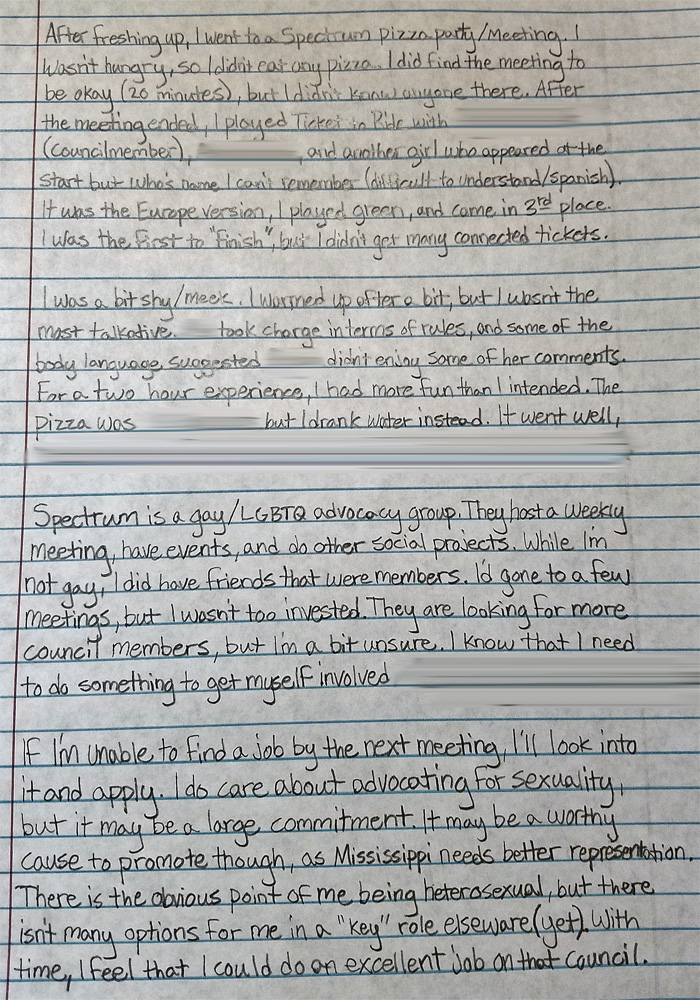 After freshing up, I went to a Spectrum pizza party/Meeting. I
wasn't hungry, so I didn't eat any pizza. I did find the meeting to
be okay (20 minutes), but I didn't know anyone there. After
the meeting ended, I played Ticket to Ride with
(Councilmember), , and another girl who appeared at the
start but who's name I can't remember (difficult to understand/Spanish).
It was the Europe version, I played green, and came in 3rd place.
I was the first to "finish", but I didn't get many connected tickets.
I was a bit shy/meek. I warmed up after a bit, but I wasn't the
most talkative. took charge in terms of rules, and some of the
body language suggested didn't enjoy some of her comments.
For a two hour experience, I had more fun than I intended. The
Pizza was but I drank water instead. It went well,
Spectrum is a gay/LGBTQ advocacy group. They host a weekly
meeting, have events, and do other social projects. While I'm
not gay, I did have friends that were members. I'd gone to a few
meetings, but I wasn't too invested. They are looking for more
council members, but I'm a bit unsure. I know that I need
to do something to get myself involved
If I'm unable to find a job by the next meeting, I'll look into
it and apply. I do care about advocating for sexuality,
but it may be a large commitment. It may be a worthy
cause to promote though, as Mississippi needs better representation.
There is the obvious point of me being heterosexual, but there
isn't many options for me in a "key" role elseware (yet). With
time, I feel that I could do an excellent job on that council.